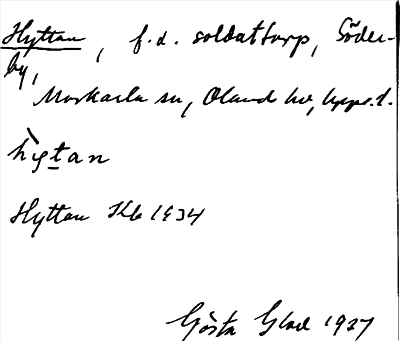 Hyttan, f.d. soldattorp, Söder-
by,
Morkarla sn, Oland hd, Upps. l.
hỳtan
Hyttan Kb 1934
Gösta Glad 1937